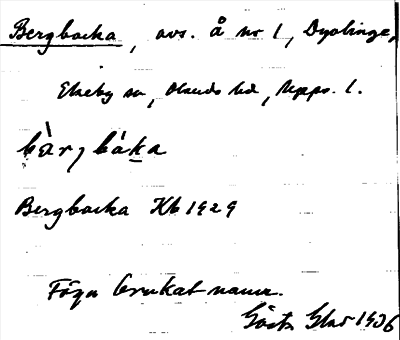 Bergbacka, avs. å nr 1, Dyvlinge,
Ekeby sn, Olands hd, Upps. l.
bàrjbáka
Bergbacka Kb 1929
Föga brukat namn.
Gösta Glas 1936